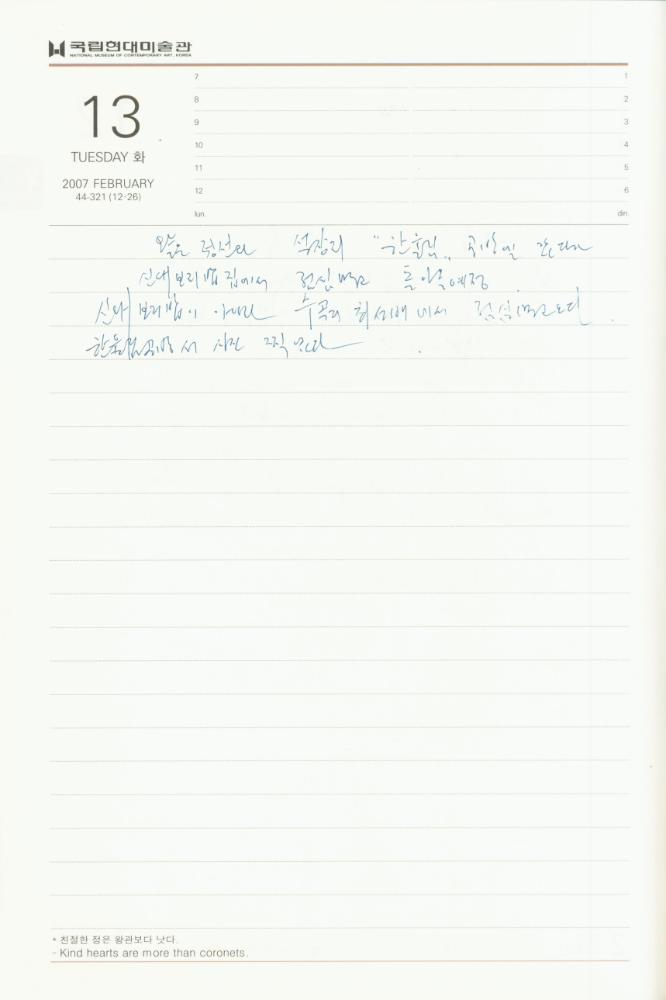 국립현대미술관
NATIONAL MUSEUM OF CONTEMPORARY ART, KOREA
13
TUESDAY 화
2007 FEBRUARY
44-321 (12-26)
7
8
9
10
11
12
lun.
1
2
3
4
5
6
din.
석장리 간다
보리밥집에서 점심먹고 돌아올 예정
보리밥이 아니라 수곡리 에서 점심먹고 오다
에서 사진 찍었다
* 친절한 정은 왕관보다 낫다.
- Kind hearts are more than coronets.